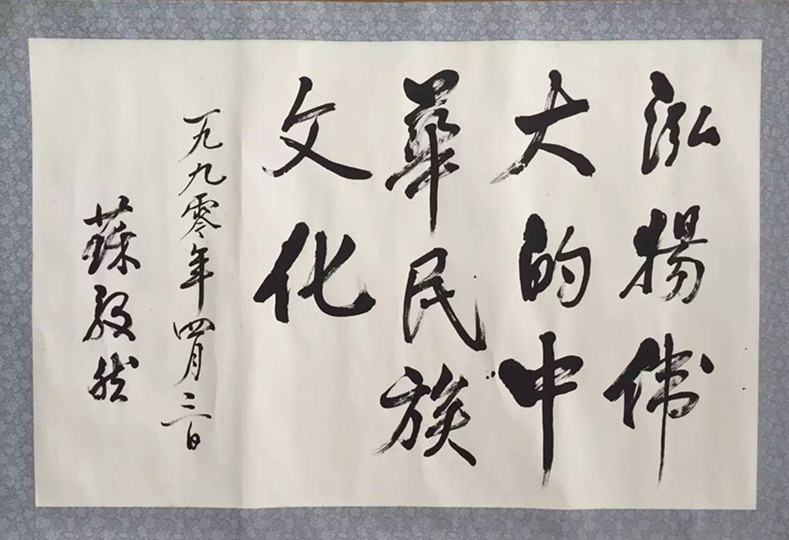 泓揚伟
大的中
華民族
文化
一九九零年四月三日
蘇毅然